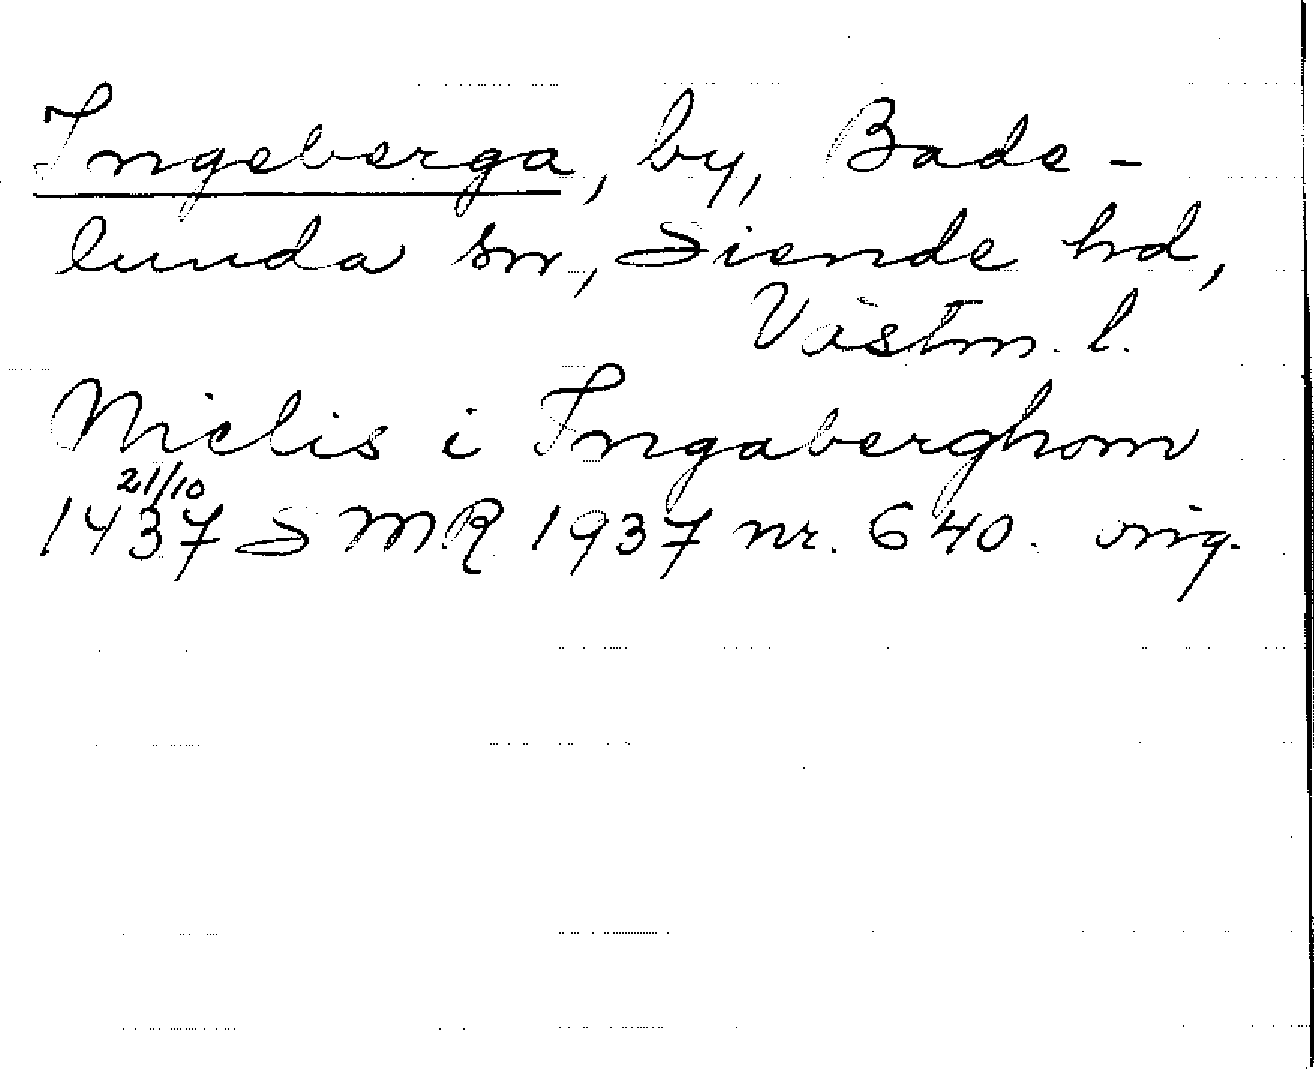 Ingeberga, by, Bade-
lunda sn, Siende hd,
Västm. l.
Niclis i Ingaberghom
21/10
1437 SMR 1937 nr. 640. orig.